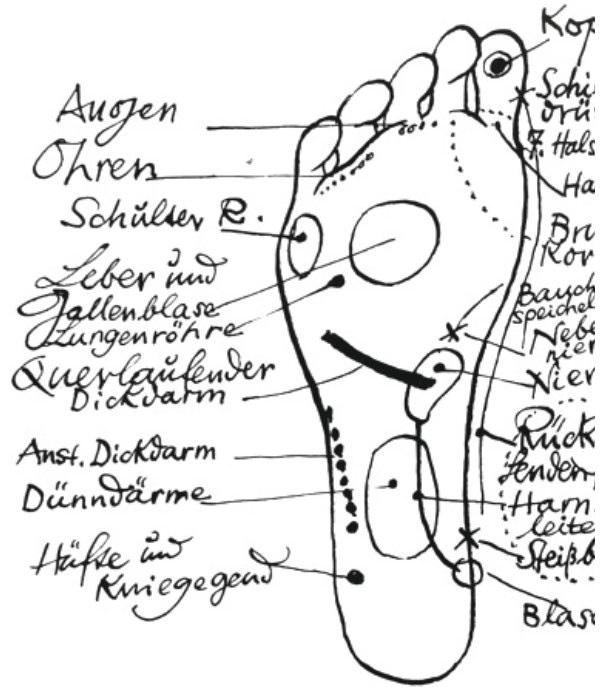 Augen
Ohren
Schulter R.
Leber und
Gallenblase
Lungenröhre
Querlaufender
Dickdarm
Anst. Dickdarm
Dünndärme
Hüfte und
Kniegegend
Kop
Schi
drü
7. Hals
Ha
Bru
Kor
Bauch
speichel
Nebe
nier
Nier
Rück
lenden
Harn
leite
Steißb
Blas